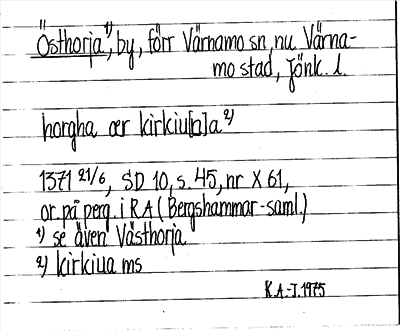 "Östhorja"¹⁾, by, förr Värnamo sn, nu Värna-
mo stad, Jönk. l.
horgha ær kirkiu[b]a²⁾
1371 21/6, SD 10, s. 45, nr X 61,
or. på perg. i RA (Bergshammar-saml.)
¹⁾ se även Västhorja
²⁾ kirkiua ms
K.A.-J. 1975